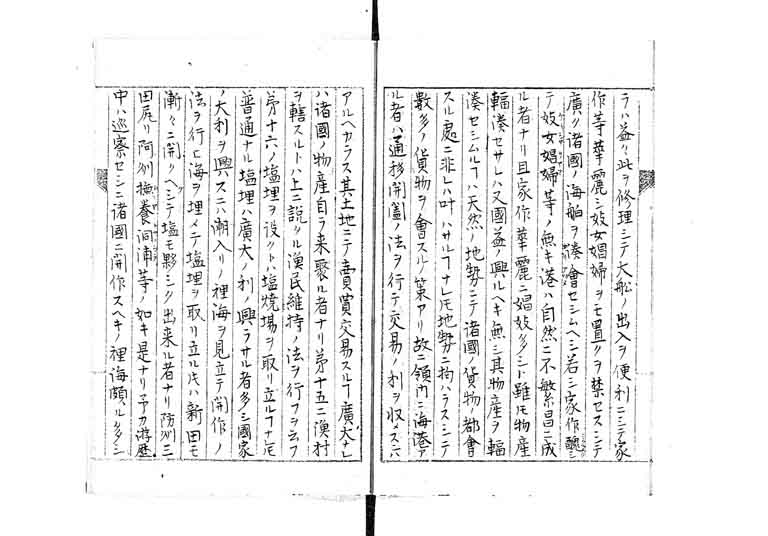 ラハ益々此ヲ修理シテ大船ノ出入ヲ便利ニシテ家
作等華麗シ妓女娼婦ヲモ置クヲ禁セスシテ
廣ク諸國ノ海舶ヲ湊會セシムヘシ若シ家作醜シ
テ妓女娼婦等ノ無キ港ハ自然ニ不繁昌ニ成
ル者ナリ且家作華麗ニ娼妓多シト雖𪜈物産
輻湊セサレハ又國益ノ興ルヘキ無シ其物産ヲ輻
湊セシムルヿハ天然ノ地勢ニテ諸國ノ貨物ノ都會
スル處ニ非レハ叶ハサルヿナレ𪜈地勢ニ拘ハラスシテ
數多ノ貨物ヲ會スルノ策アリ故ニ領内ニ海港ア
ル者ハ通移開闔ノ法ヲ行テ交易ノ利ヲ収メスンハ
アルヘカラス其土地ニテ賣買交易スルヿ廣大ナレ
ハ諸國ノ物産自ラ来聚ル者ナリ第十五ニ漁村
ヲ轄スルトハ上ニ説タル漁民維持ノ法ヲ行フヲ云フ
第十六ノ塩埋ヲ設クトハ塩焼場ヲ取リ立ルヿナレ𪜈
普通ナル塩埋ハ廣大ノ利ノ興ラサル者多シ國家
ノ大利ヲ興スニハ潮入リノ裡海ヲ見立テ開作ノ
法ヲ行ヒ海ヲ埋メテ塩埋ヲ取リ立ル片ハ新田モ
漸々ニ開クヘシテ塩モ夥シク出来ル者ナリ防州三
田尻リ阿州撫養洞浦等ノ如キ是ナリ予カ游歴
中ハ巡察セシニ諸國ニ開作スヘキノ裡海頗ル多シ